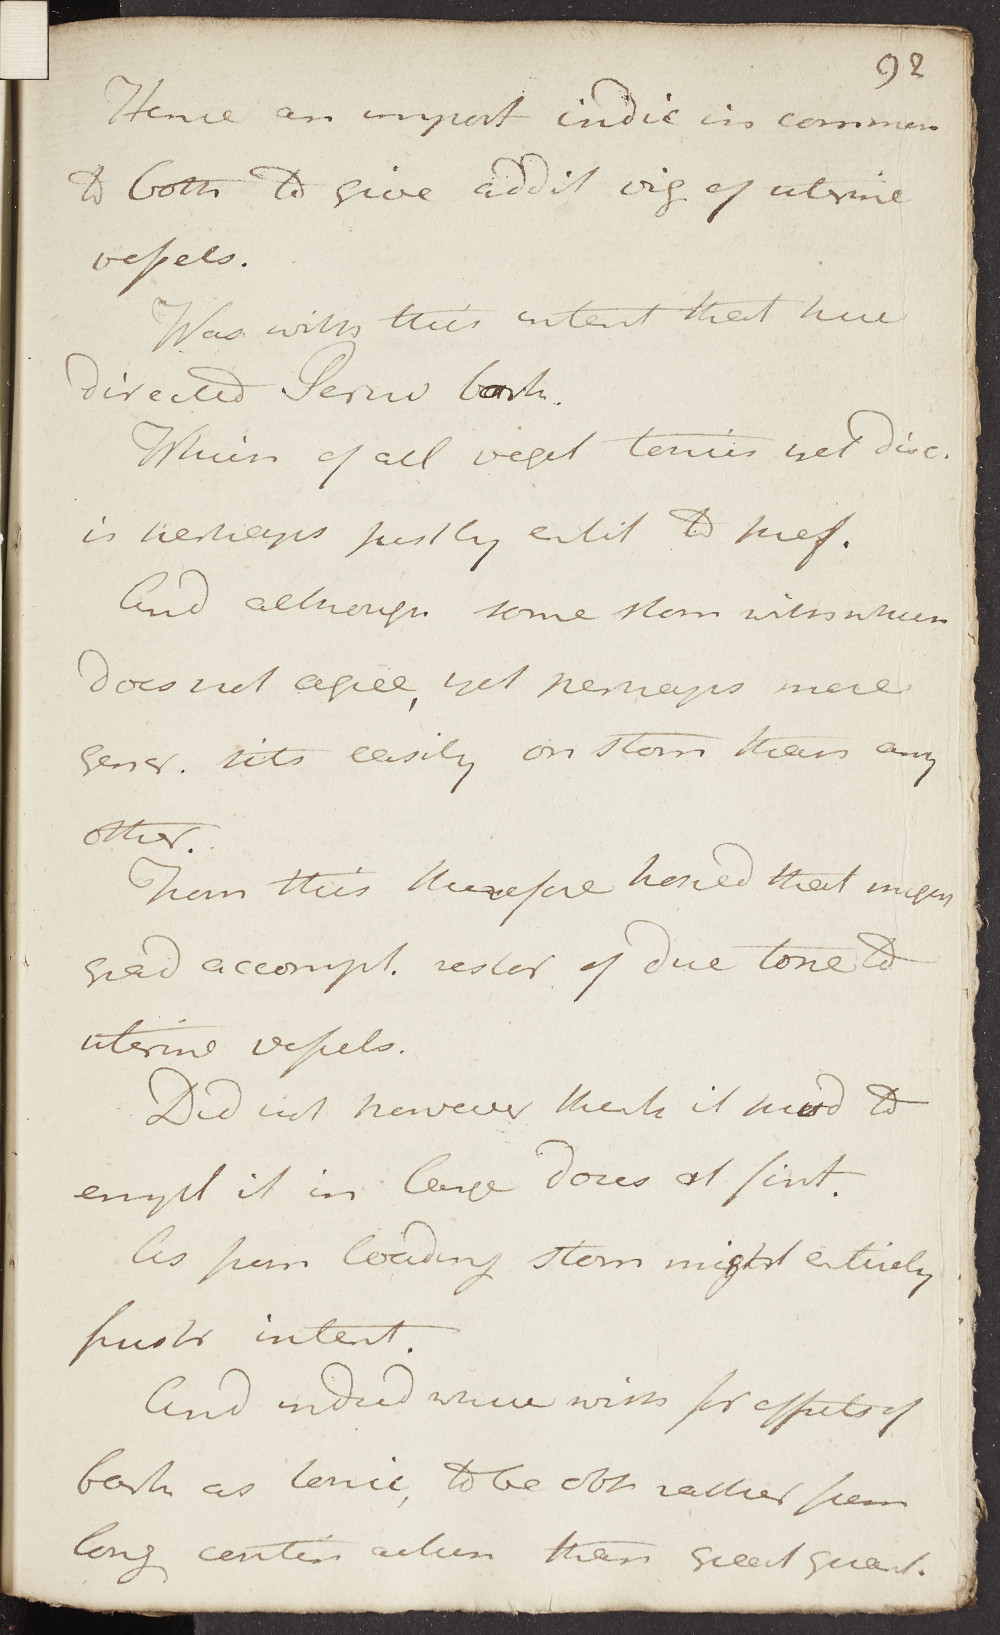 92
Hence an import indic in common
to both to give addit vig of uterine
vessels.
Was with this intent that here
directed Peruv bark.
Which of all veget tonics yet disc.
is perhaps justly entit to pref.
And although some stom with which
does not agree, yet perhaps more
gener. sits easily on stom than any
other.
From this therefore hoped that
grad accompt. restor of due tone to
uterine vessels.
Did not however think it to
empl it in large doses at first.
As from loading stom might entirely
frustr intent.
And indeed where wish for effects of
bark as tonic, to be obt rather from
long contin action than great quant.